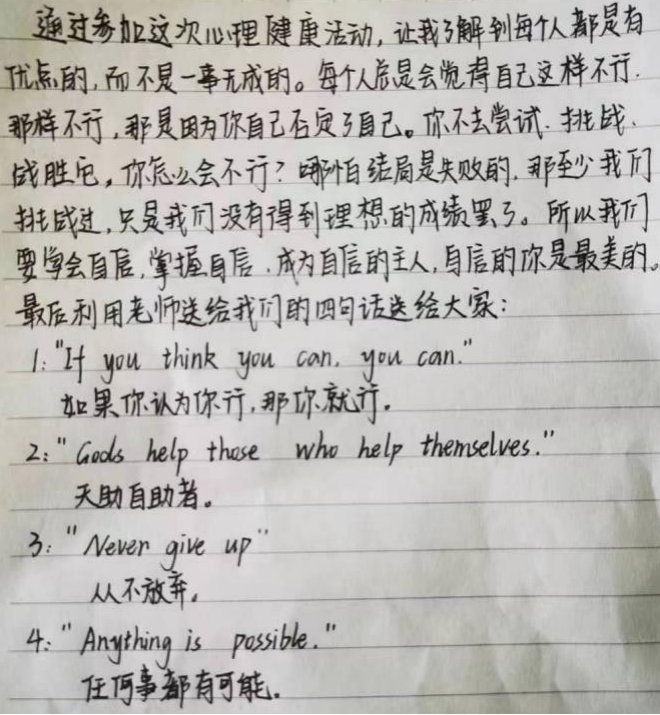 通过参加这次心理健康活动,让我了解到每个人都是有
优点的,而不是一事无成的。每个人总是会觉得自己这样不行.
那样不行,那是因为你自己否定了自己。你不去尝试.挑战.
战胜它,你怎么会不行?哪怕结局是失败的,那至少我们
挑战过,只是我们没有得到理想的成绩罢了。所以我们
要学会自信,掌握自信,成为自信的主人,自信的你是最美的。
最后利用老师送给我们的四句话送给大家:
1:"If you think you can, you can."
如果你认为你行,那你就行。
2:"Gods help those who help themselves."
天助自助者。
3:"Never give up"
从不放弃。
4:"Anything is possible."
任何事都有可能.